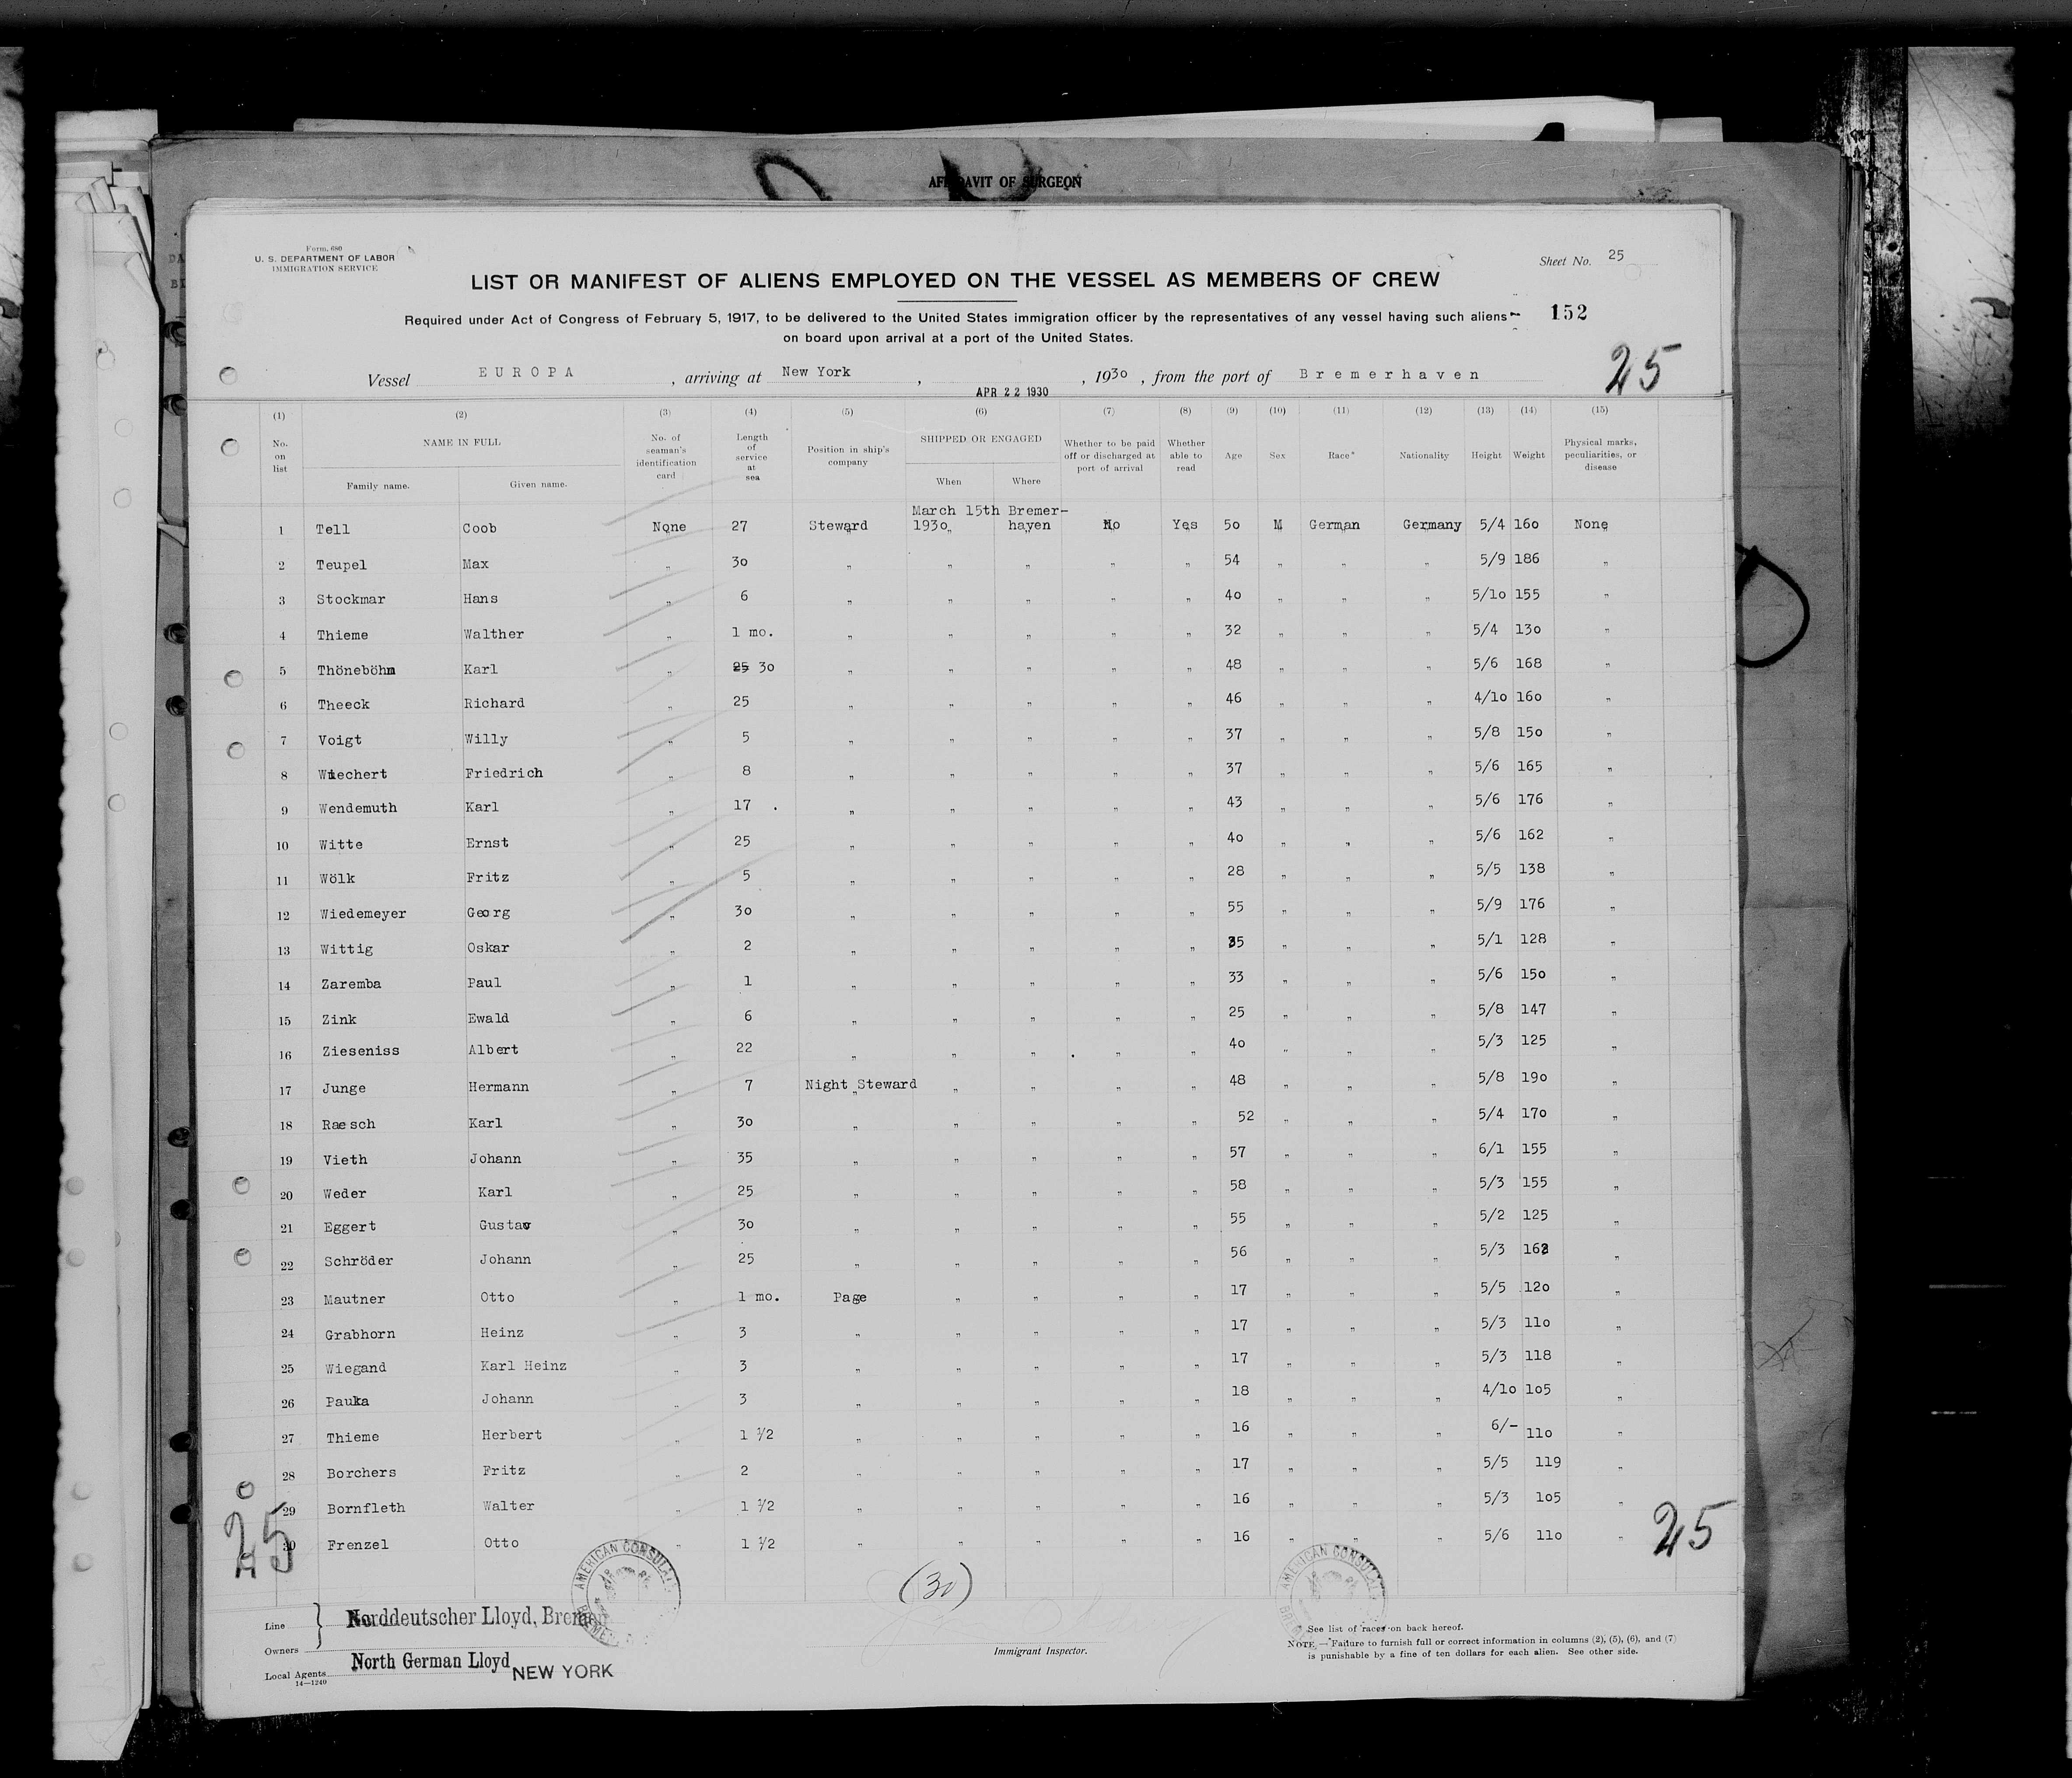 AFFIDAVIT OF SURGEON
Form 680
U. S. DEPARTMENT OF LABOR
IMMIGRATION SERVICE
Sheet No. 25
LIST OR MANIFEST OF ALIENS EMPLOYED ON THE VESSEL AS MEMBERS OF CREW
Required under Act of Congress of February 5, 1917, to be delivered to the United States immigration officer by the representatives of any vessel having such aliens
on board upon arrival at a port of the United States.
152
25
Vessel EUROPA, arriving at New York, APR 22 1930, 1930, from the port of Bremerhaven
(1) (2) (3) (4) (5) (6) (7) (8) (9) (10) (11) (12) (13) (14) (15)
No. on list NAME IN FULL Family name. Given name. No. of seaman's identification card Length of service at sea Position in ship's company SHIPPED OR ENGAGED When Where Whether to be paid off or discharged at port of arrival Whether able to read Age Sex Race* Nationality Height Weight Physical marks, peculiarities, or disease
1 Tell Coob None 27 Steward March 15th 1930 Bremerhaven No Yes 50 M German Germany 5/4 160 None
2 Teupel Max " 30 " " " " " 54 " " " 5/9 186 "
3 Stockmar Hans " 6 " " " " " 40 " " " 5/10 155 "
4 Thieme Walther " 1 mo. " " " " " 32 " " " 5/4 130 "
5 Thöneböhm Karl " 25 30 " " " " " 48 " " " 5/6 168 "
6 Theeck Richard " 25 " " " " " 46 " " " 4/10 160 "
7 Voigt Willy " 5 " " " " " 37 " " " 5/8 150 "
8 Wiechert Friedrich " 8 " " " " " 37 " " " 5/6 165 "
9 Wendemuth Karl " 17 " " " " " 43 " " " 5/6 176 "
10 Witte Ernst " 25 " " " " " 40 " " " 5/6 162 "
11 Wölk Fritz " 5 " " " " " 28 " " " 5/5 138 "
12 Wiedemeyer Georg " 30 " " " " " 55 " " " 5/9 176 "
13 Wittig Oskar " 2 " " " " " 35 " " " 5/1 128 "
14 Zaremba Paul " 1 " " " " " 33 " " " 5/6 150 "
15 Zink Ewald " 6 " " " " " 25 " " " 5/8 147 "
16 Zieseniss Albert " 22 " " " " " 40 " " " 5/3 125 "
17 Junge Hermann " 7 Night Steward " " " " 48 " " " 5/8 190 "
18 Raesch Karl " 30 " " " " " 52 " " " 5/4 170 "
19 Vieth Johann " 35 " " " " " 57 " " " 6/1 155 "
20 Weder Karl " 25 " " " " " 58 " " " 5/3 155 "
21 Eggert Gustav " 30 " " " " " 55 " " " 5/2 125 "
22 Schröder Johann " 25 " " " " " 56 " " " 5/3 162 "
23 Mautner Otto " 1 mo. Page " " " " 17 " " " 5/5 120 "
24 Grabhorn Heinz " 3 " " " " " 17 " " " 5/3 110 "
25 Wiegand Karl Heinz " 3 " " " " " 17 " " " 5/3 118 "
26 Pauka Johann " 3 " " " " " 18 " " " 4/10 105 "
27 Thieme Herbert " 1 1/2 " " " " " 16 " " " 6/- 110 "
28 Borchers Fritz " 2 " " " " " 17 " " " 5/5 119 "
29 Bornfleth Walter " 1 1/2 " " " " " 16 " " " 5/3 105 "
30 Frenzel Otto " 1 1/2 " " " " " 16 " " " 5/6 110 "
25
25
(30)
AMERICAN CONSULATE BREMEN
AMERICAN CONSULATE
Line Owners Norddeutscher Lloyd, Bremen
Local Agents North German Lloyd NEW YORK
14—1240
Immigrant Inspector.
*See list of races on back hereof.
NOTE.—Failure to furnish full or correct information in columns (2), (5), (6), and (7)
is punishable by a fine of ten dollars for each alien. See other side.